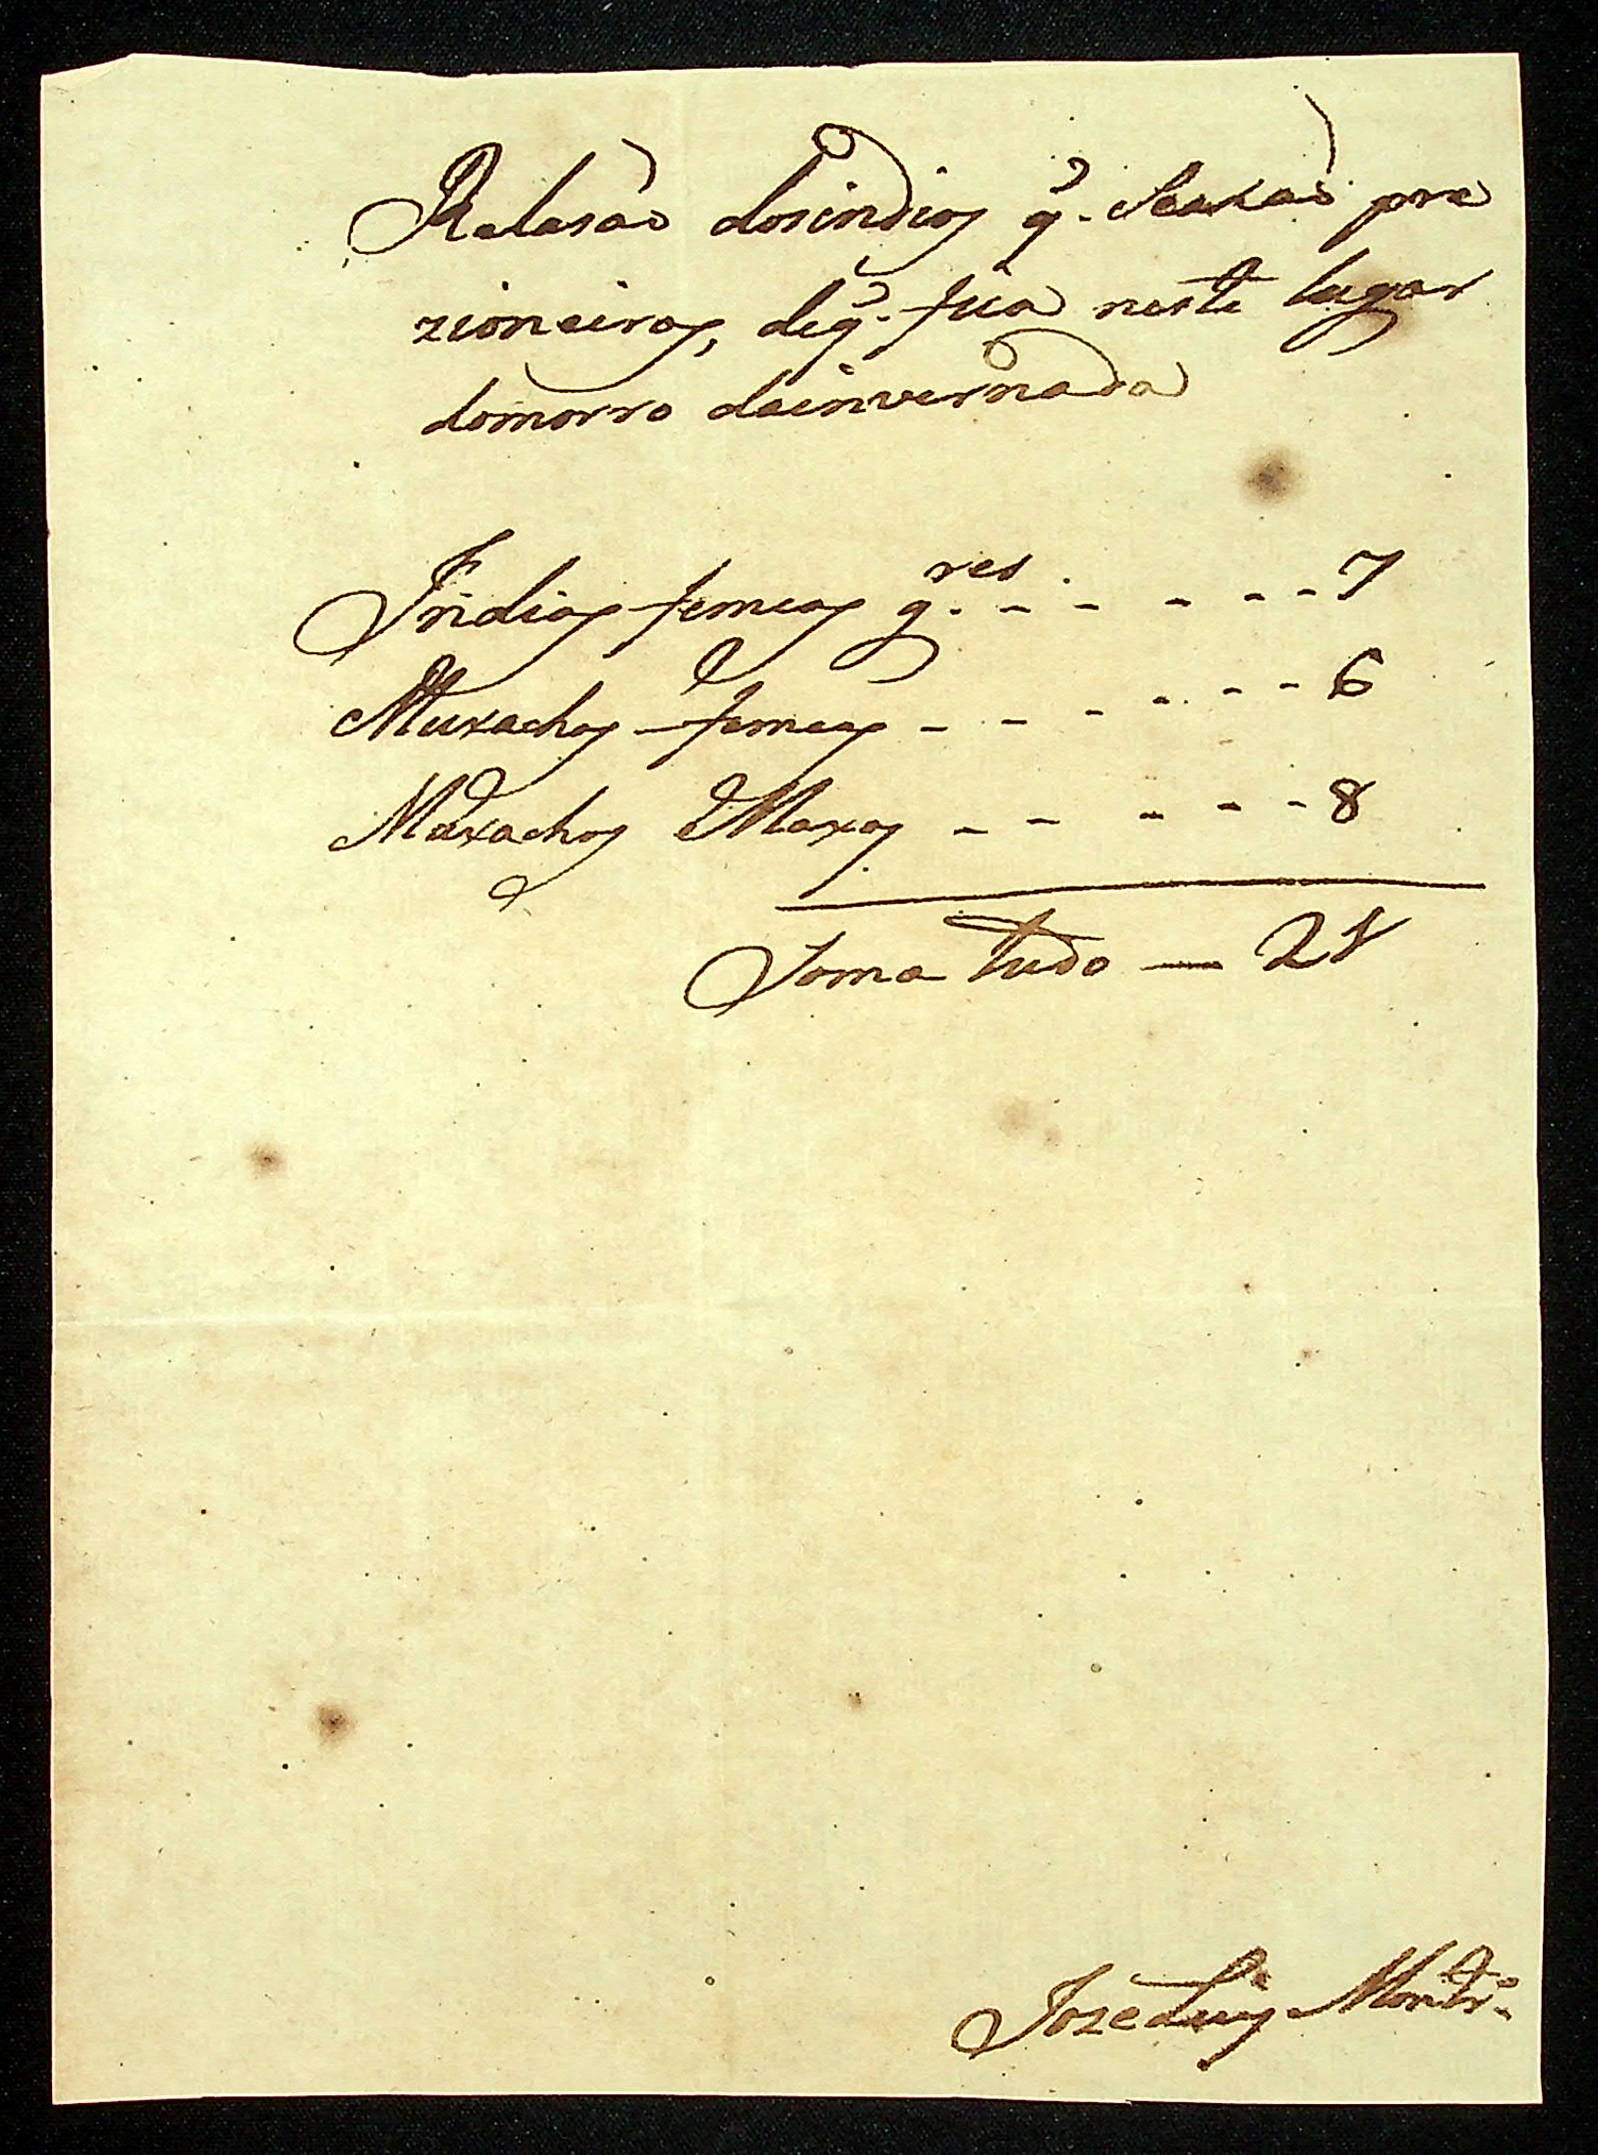 Relasão dosindios q̃. Seaxão pre
zioneiros, deq̃. fica neste lugar
domorro dainvernada
Indias femeas g.res - - - - - 7
Muxachas femeas - - - - - - 6
Muxachos Maxos - - - - - 8
Soma tudo — 21
Joze Luis Montr.o